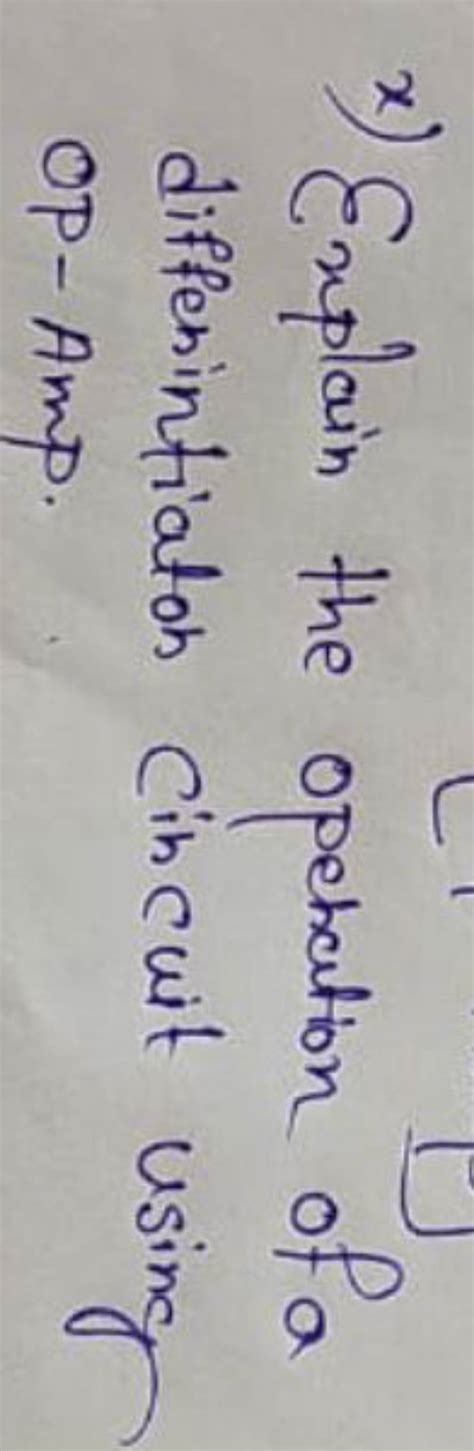 x) Explain the operation of a
differintiator circuit using
OP-Amp.